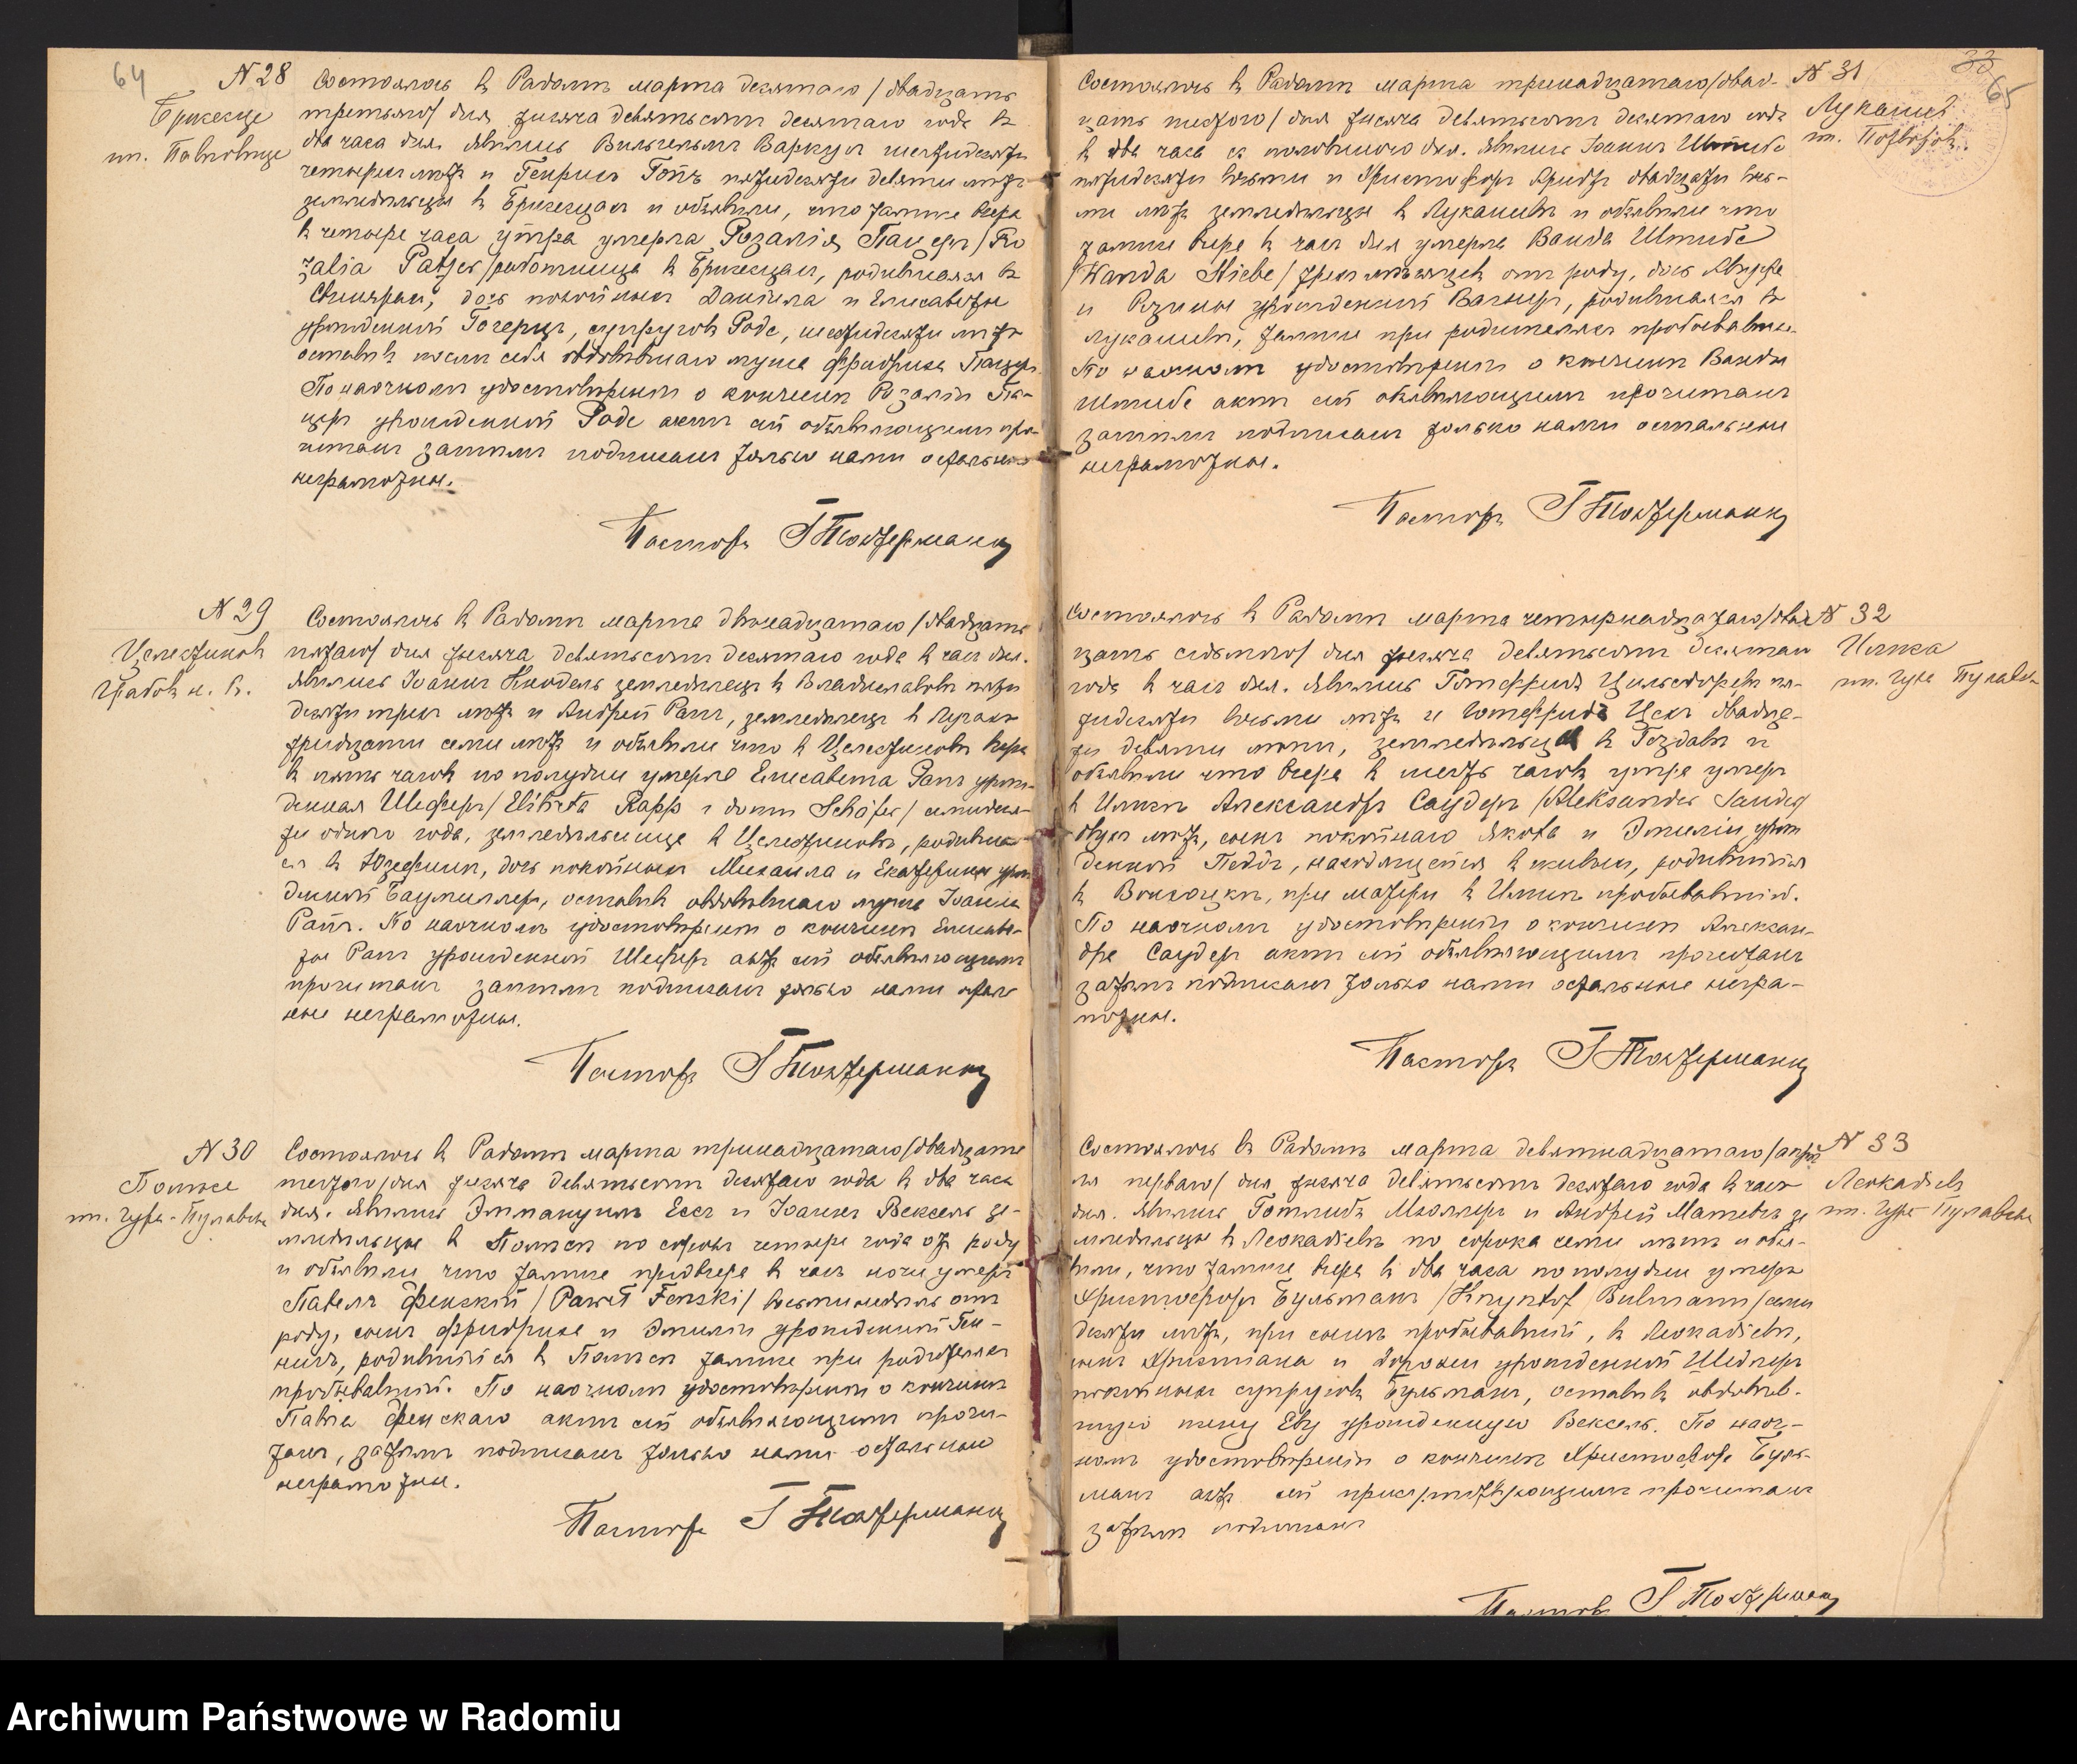 64
N 28
Брикезце
гм. Павловице
Состоялось в Радоме марта десятаго / двадцать
третьяго / дня тысяча девятьсотъ десятаго года в
два часа дня. Явились Вильгельмъ Варкуш шестидесяти
четырехъ летъ и Генрихъ Готъ пятидесяти девяти летъ
земледельцы в Брикезцахъ и объявили, что тамже вчера
в четыре часа утра умерла Розалія Пацеръ / Ro
zalia Patzer / работница в Брикезцахъ, родившаяся в
дочь покойныхъ Даніила и Елисаветы
урожденной супруговъ Роде, шестидесяти летъ
оставивъ после себя овдовевшаго мужа Фридриха Пацеръ.
По наочномъ удостовереніи о кончине Розаліи Па-
церъ урожденной Роде актъ сей объявляющимъ про-
читанъ затемъ подписанъ только нами остальные
неграмотны.
Пасторъ Г Тохтерманъ
N 29
Целестиновъ
Грабовъ н. В.
Состоялось в Радоме марта двенадцатаго / двадцать
пятаго / дня тысяча девятьсотъ десятаго года в часъ дня.
Явились Іоаннъ Кнодель земледелецъ в Владиславове пяти
десяти трехъ летъ и Андрей Рапъ, земледелецъ в
тридцати семи летъ и объявили что в Целестинове вчера
в пять часовъ по полудни умерла Елисавета Рапъ урож-
денная Шеферъ / Elżbieta Rapp z domu Schäfer / семидеся-
ти одного года, земледельница в Целестинове, родивша-
ся в Юзефине, дочь покойныхъ Михаила и Екатерины урож
денной Баумиллеръ, оставивъ овдовевшаго мужа Іоанна
Рапъ. По наочномъ удостовереніи о кончине Елисаве-
ты Рапъ урожденной Шеферъ актъ сей объявляющимъ
прочитанъ затемъ подписанъ только нами осталь
ные неграмотны.
Пасторъ Г Тохтерманъ
N 30
Полиже
гм. Гура-Пулавска
Состоялось в Радоме марта тринадцатаго / двадцать
шестого / дня тысяча девятьсотъ десятаго года в два часа
дня. Явились Эммануилъ Ессъ и Іоаннъ Вексель зе-
мледельцы в по сорокъ четыре года отъ роду
и объявили, что тамже предвчера в часъ ночи умеръ
Павелъ Фенскій / Paweł Fenski / восьминедель отъ
роду, сынъ Фридриха и Эмиліи урожденной Ген-
нихъ, родившійся в тамже при родителяхъ
пробывавшій. По наочномъ удостовереніи о кончине
Павла Фенскаго актъ сей объявляющимъ прочи-
танъ, затемъ подписанъ только нами остальные
неграмотны.
Пасторъ Г Тохтерманъ
33
65
N 31
Лукашевъ
гм. Подвозовъ.
Состоялось в Радоме марта тринадцатаго / двад-
цать шестого / дня тысяча девятьсотъ десятаго года
в два часа съ половиного дня. Явились Іоаннъ Штибе
пятидесяти восьми и Христофоръ двадцати вось-
ми летъ земледельцы в Лукашеве и объявили что
тамже вчера в часъ дня умерла Ванда Штибе
/ Wanda Stiebe / трехъ месяцевъ отъ роду, дочь Августа
и Розины урожденной Вагнеръ, родившаяся в
Лукашеве, тамже при родителяхъ пробывавшая.
По наочномъ удостовереніи о кончине Ванды
Штибе актъ сей объявляющимъ прочитанъ
затемъ подписанъ только нами остальные
неграмотны.
Пасторъ Г Тохтерманъ
N 32
Илжа
гм. Гура Пулавска
Состоялось в Радоме марта четырнадцатаго / двад
цать седьмого / дня тысяча девятьсотъ десятаго
года в часъ дня. Явились Готфридъ Цильсдорфъ пя-
тидесяти восьми летъ и Готфридъ Цехъ двадца-
ти девяти летъ, земледельцы в Гоздаве и
объявили что вчера в шесть часовъ утра умеръ
в Александръ Саудеръ / Aleksander Sauder /
двухъ летъ, сынъ покойнаго Якова и Эмиліи урож
денной находящейся в живыхъ, родившійся
в при матери в пробывавшій.
По наочномъ удостовереніи о кончине Алексан-
дра Саудеръ актъ сей объявляющимъ прочитанъ
затемъ подписанъ только нами остальные негра-
мотны.
Пасторъ Г Тохтерманъ
N 33
Леокадіевъ
гм. Гура Пулавска
Состоялось в Радоме марта девятнадцатаго / апре
ля перваго / дня тысяча девятьсотъ десятаго года в часъ
дня. Явились Готлибъ Мюллеръ и Андрей зе
мледельцы в Леокадіеве по сорока семи летъ и объя-
вили, что тамже вчера в два часа по полудни умеръ
Христофоръ Бульманъ / Krysztof Bulmann / семи
десяти летъ, при сыне пробывавшій, в Леокадіеве,
сынъ Христіана и Доротеи урожденной Шеднеръ
покойныхъ супруговъ Бульманъ, оставивъ овдовев-
шую жену Еву урожденную Вексель. По наоч-
номъ удостовереніи о кончине Христофора Буль-
манъ актъ сей присутствующимъ прочитанъ
затемъ подписанъ
Пасторъ Г Тохтерманъ
Archiwum Państwowe w Radomiu